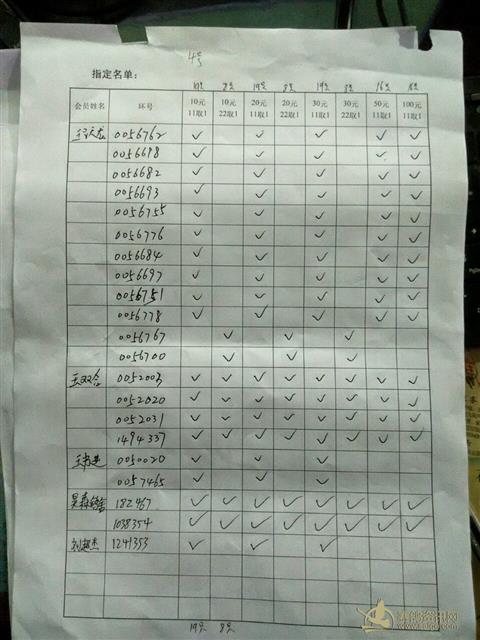 4号
指定名单:
19只 8只 19只 8只 19只 8只 16只 16只
会员姓名 环号 10元11取1 10元22取1 20元11取1 20元22取1 30元11取1 30元22取1 50元11取1 100元11取1
0056762 ✓ ✓ ✓ ✓ ✓
0056698 ✓ ✓ ✓ ✓ ✓
0056682 ✓ ✓ ✓ ✓ ✓
0056693 ✓ ✓ ✓ ✓ ✓
0056755 ✓ ✓ ✓ ✓ ✓
0056776 ✓ ✓ ✓ ✓ ✓
0056684 ✓ ✓ ✓ ✓ ✓
0056697 ✓ ✓ ✓ ✓ ✓
0056751 ✓ ✓ ✓ ✓ ✓
0056778 ✓ ✓ ✓ ✓ ✓
0056767 ✓ ✓ ✓
0056700 ✓ ✓ ✓
王双全 0052003 ✓ ✓ ✓ ✓ ✓ ✓ ✓ ✓
0052020 ✓ ✓ ✓ ✓ ✓ ✓ ✓ ✓
0052031 ✓ ✓ ✓ ✓ ✓ ✓ ✓ ✓
1494337 ✓ ✓ ✓ ✓ ✓ ✓ ✓ ✓
0050020 ✓ ✓ ✓
0057465 ✓ ✓ ✓
182467 ✓ ✓ ✓ ✓ ✓ ✓ ✓ ✓
1038354 ✓ ✓ ✓ ✓ ✓ ✓ ✓ ✓
刘超杰 1241353 ✓ ✓ ✓
19只 8只
赛鸽资讯网